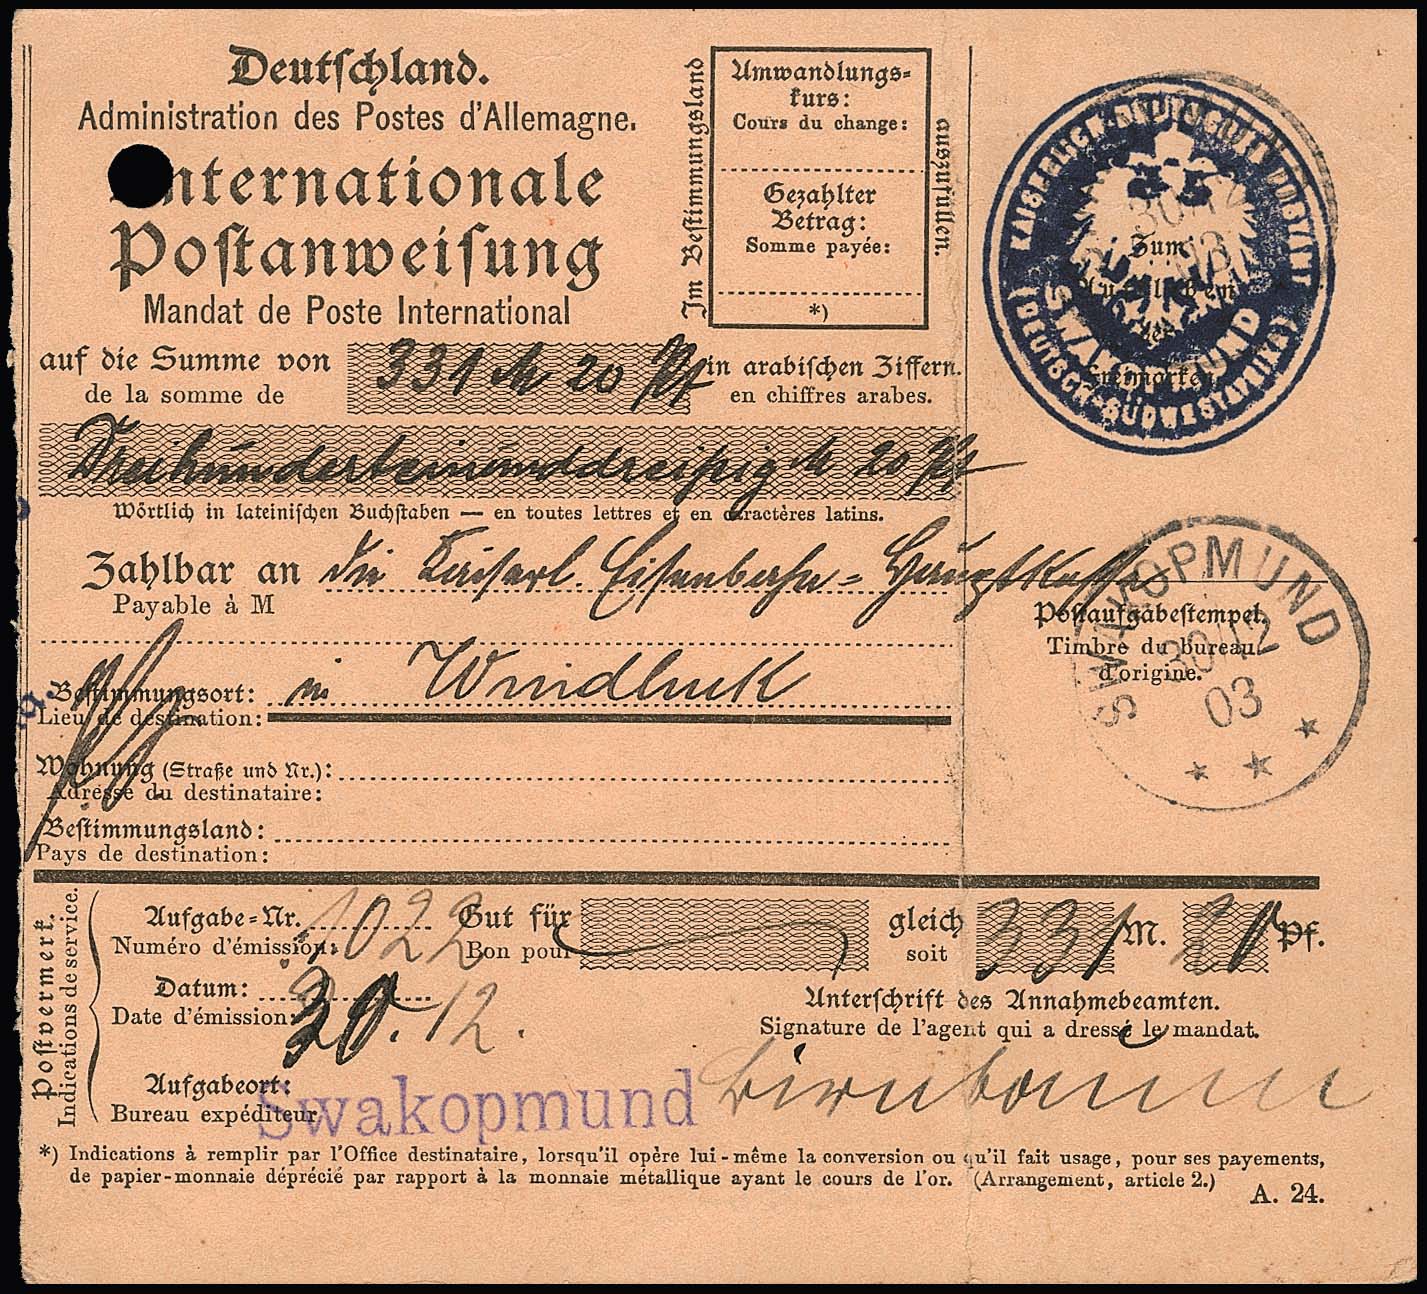 Deutschland.
Administration des Postes d'Allemagne.
nternationale
Postanweisung
Mandat de Poste International
Im Bestimmungsland
Umwandlungs-
kurs:
Cours du change:
Gezahlter
Betrag:
Somme payée:
*)
auszufüllen.
Zum
SWAKOPMUND
(DEUTSCH-SÜDWESTAFRIKA)
auf die Summe von 331 M 20 Pf in arabischen Ziffern.
de la somme de en chiffres arabes.
Dreihunderteinunddreißig M 20 Pf
Wörtlich in lateinischen Buchstaben — en toutes lettres et en caractères latins.
Zahlbar an die Kaiserl. Eisenbahn-Hauptkasse
Payable à M
Postaufgabestempel.
Timbre du bureau
d'origine.
SWAKOPMUND
30/12
03
Bestimmungsort: in Windhuk
Lieu de destination:
Wohnung (Straße und Nr.):
Adresse du destinataire:
Bestimmungsland:
Pays de destination:
Postvermerk.
Indications de service.
Aufgabe-Nr. 1022 Gut für gleich 331 M. 20 Pf.
Numéro d'émission: Bon pour soit
Datum: 30.12.
Date d'émission:
Unterschrift des Annahmebeamten.
Signature de l'agent qui a dressé le mandat.
Aufgabeort: Swakopmund
Bureau expéditeur
*) Indications à remplir par l'Office destinataire, lorsqu'il opère lui-même la conversion ou qu'il fait usage, pour ses payements,
de papier-monnaie déprécié par rapport à la monnaie métallique ayant le cours de l'or. (Arrangement, article 2.)
A. 24.